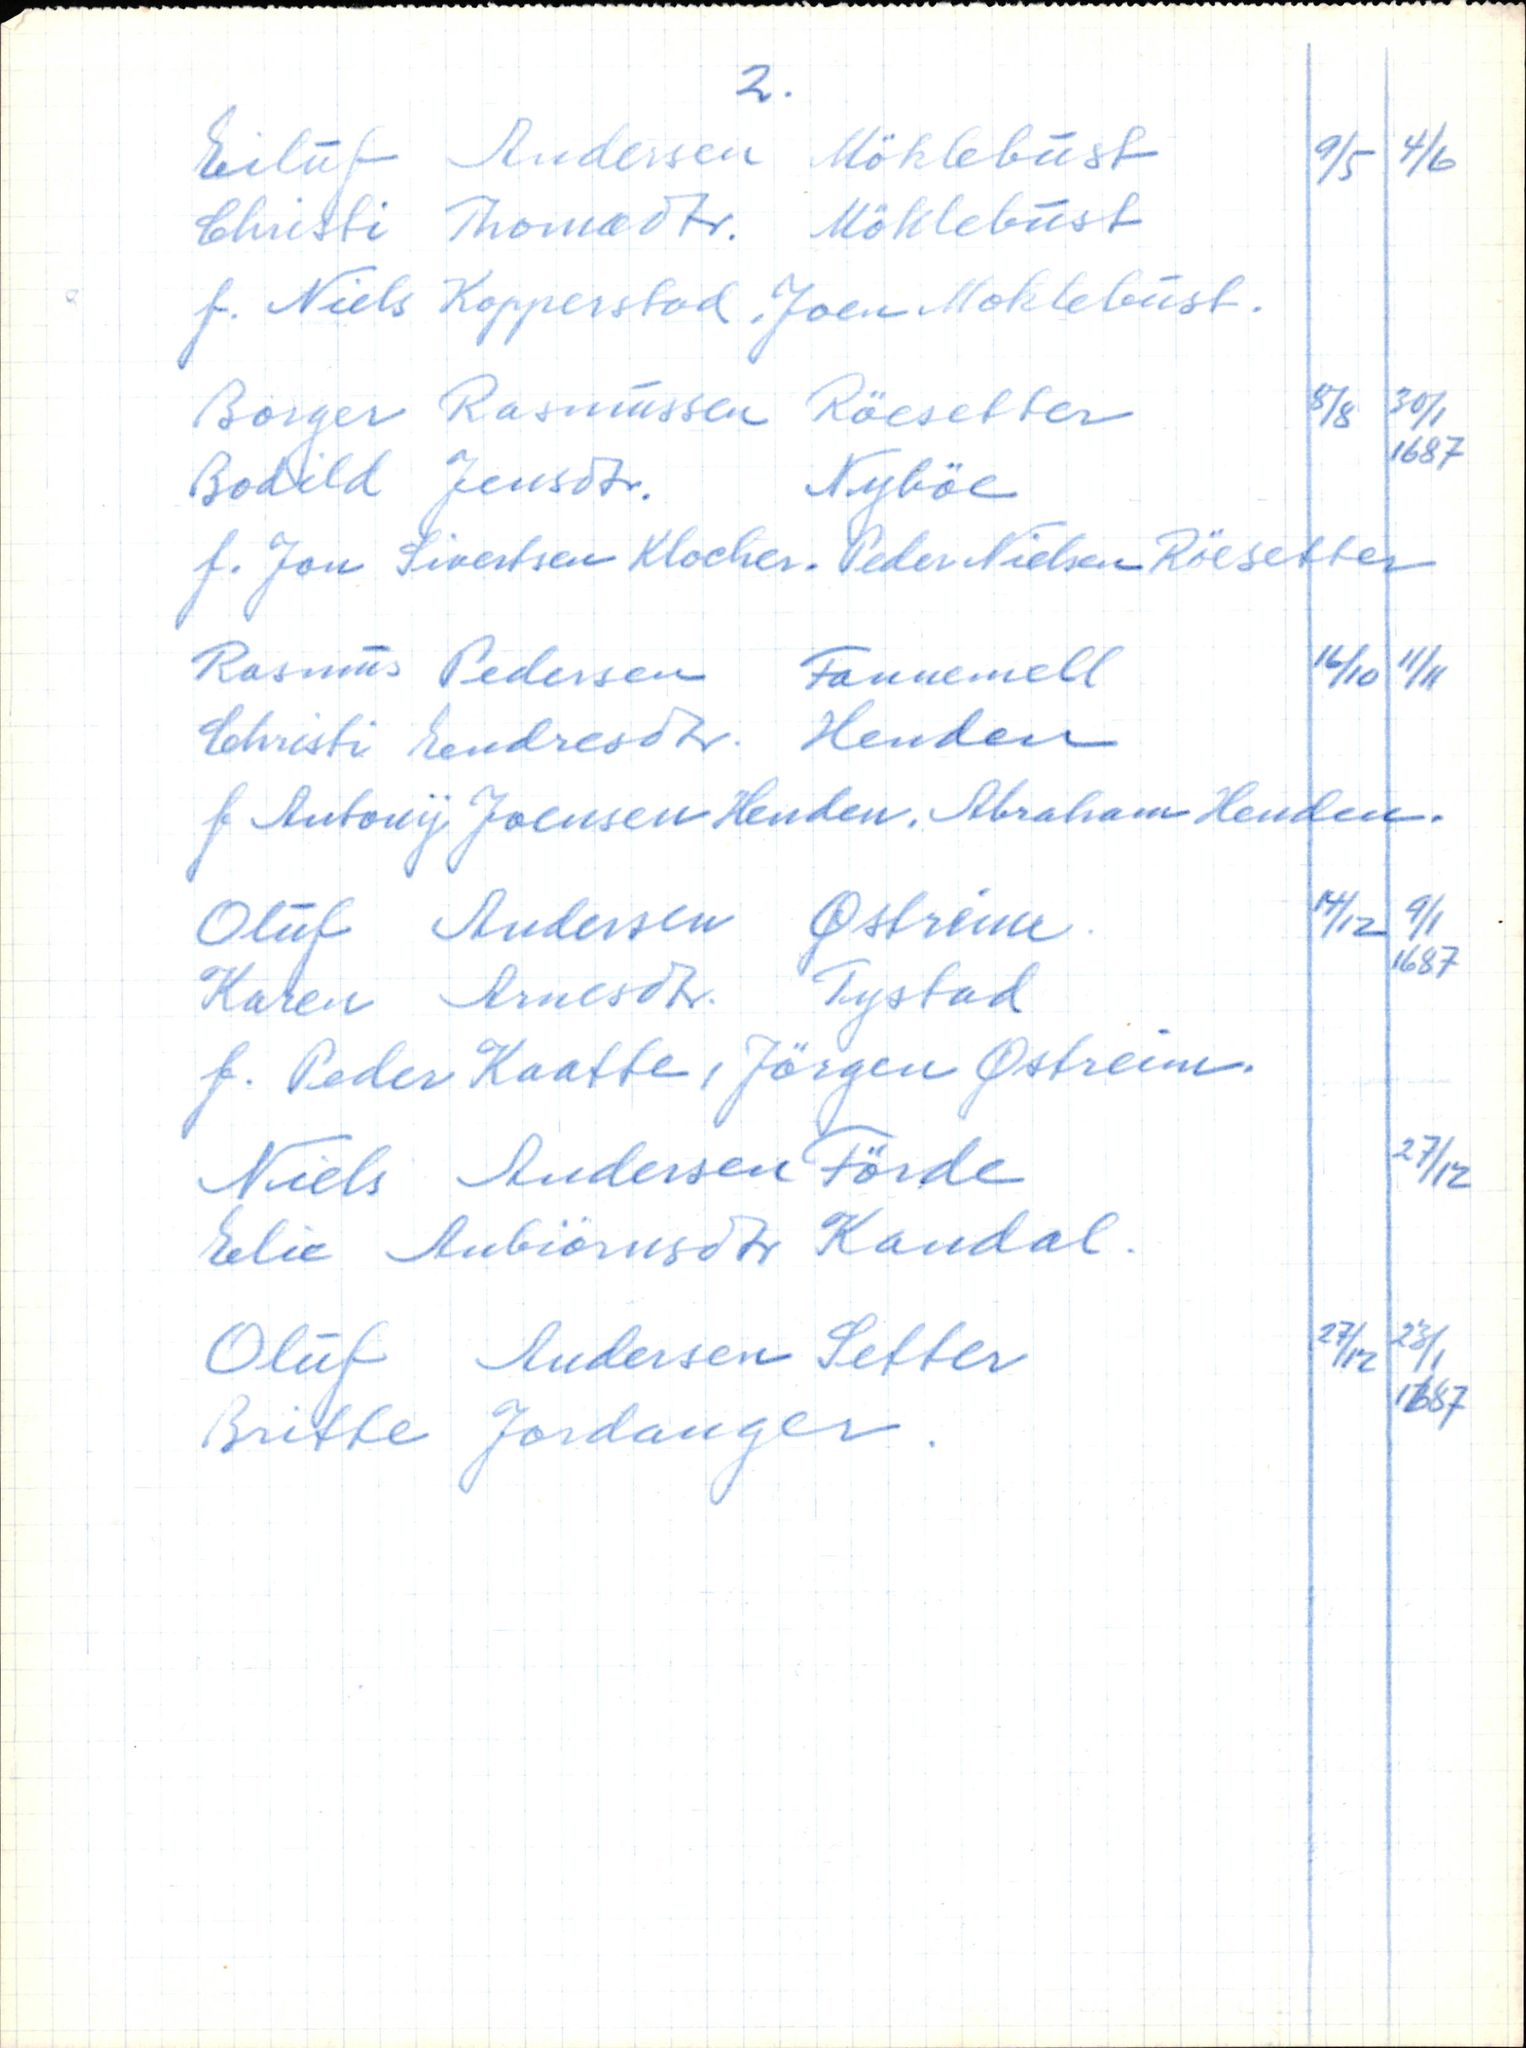 2.
Eilūf Andersen Möklebūst 9/5 4/6
Christi Thomædtr. Möklebūst
f. Niels Kopperstad, Joen Moklebūst.
Borger Rasmūssen Röesetter 8/8 30/1
1687
Bodild Jensdtr. Nyböe
f. Jon Sivertsen Klocker. Peder Nielsen Röesetter
Rasmūs Pedersen Fannemell 16/10 11/11
Christi Eendresdtr. Henden
f Antonÿ Joensen Henden. Abraham Henden.
Olūf Andersen Østreim. 14/12 9/1
1687
Karen Arnesdtr. Tystad
f. Peder Kaatte, Jörgen Østreim.
Niels Andersen Förde 27/12
Elie Anbiörnsdtr Kandal.
Olūf Andersen Setter 27/12 23/1
1687
Britte Jordanger.